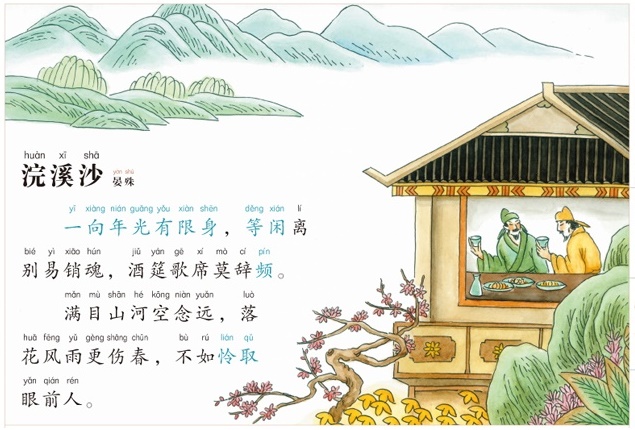 huàn xī shā
浣溪沙 yàn shū
晏殊
yí xiàng nián guāng yǒu xiàn shēn děng xián lí
一向年光有限身，等闲离
bié yì xiāo hún jiǔ yán gē xí mò cí pín
别易销魂，酒筵歌席莫辞频。
mǎn mù shān hé kōng niàn yuǎn luò
满目山河空念远，落
huā fēng yǔ gèng shāng chūn bù rú lián qǔ
花风雨更伤春，不如怜取
yǎn qián rén
眼前人。